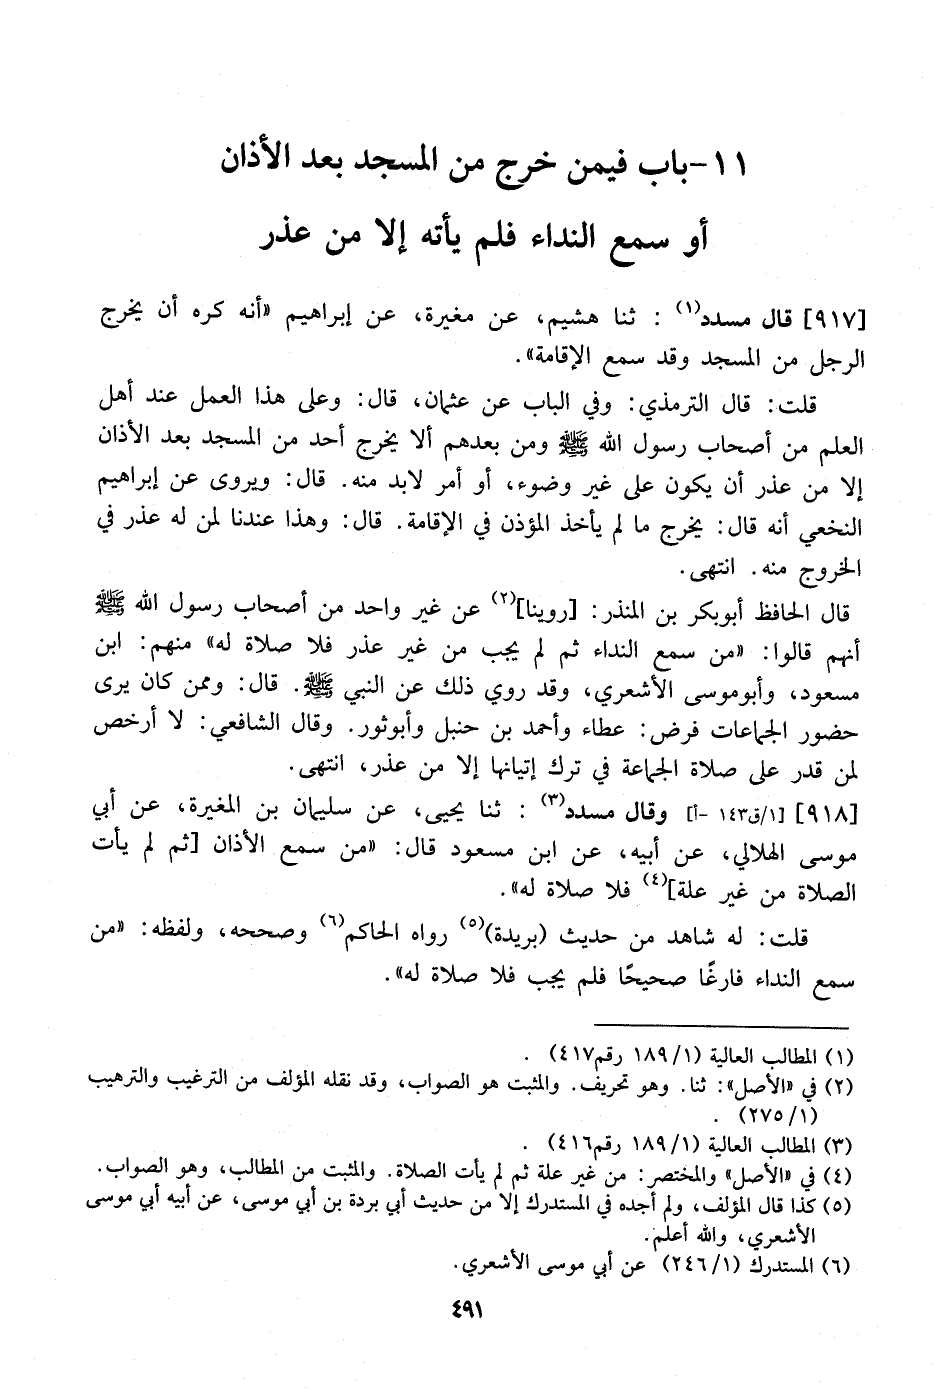 ١١- باب فيمن خرج من المسجد بعد الأذان
أو سمع النداء فلم يأته إلا من عذر
[٩١٧] قال مسدد(١) : ثنا هشيم، عن مغيرة، عن إبراهيم «أنه كره أن يخرج
الرجل من المسجد وقد سمع الإقامة».
قلت: قال الترمذي: وفي الباب عن عثمان، قال: وعلى هذا العمل عند أهل
العلم من أصحاب رسول الله ﷺ ومن بعدهم ألا يخرج أحد من المسجد بعد الأذان
إلا من عذر أن يكون على غير وضوء، أو أمر لابد منه. قال: ويروى عن إبراهيم
النخعي أنه قال: يخرج ما لم يأخذ المؤذن في الإقامة. قال: وهذا عندنا لمن له عذر في
الخروج منه. انتهى.
قال الحافظ أبوبكر بن المنذر: [روينا](٢) عن غير واحد من أصحاب رسول الله ﷺ
أنهم قالوا: «من سمع النداء ثم لم يجب من غير عذر فلا صلاة له» منهم: ابن
مسعود، وأبوموسى الأشعري، وقد روي ذلك عن النبي ﷺ. قال: وممن كان يرى
حضور الجماعات فرض: عطاء وأحمد بن حنبل وأبوثور. وقال الشافعي: لا أرخص
لمن قدر على صلاة الجماعة في ترك إتيانها إلا من عذر، انتهى.
[٩١٨] [١/ق١٤٣ -أ] وقال مسدد(٣) : ثنا يحيى، عن سليمان بن المغيرة، عن أبي
موسى الهلالي، عن أبيه، عن ابن مسعود قال: «من سمع الأذان [ثم لم يأت
الصلاة من غير علة](٤) فلا صلاة له».
قلت: له شاهد من حديث (بريدة)(٥) رواه الحاكم(٦) وصححه، ولفظه: «من
سمع النداء فارغًا صحيحًا فلم يجب فلا صلاة له».
(١) المطالب العالية (١/ ١٨٩ رقم٤١٧) .
(٢) في «الأصل»: ثنا. وهو تحريف. والمثبت هو الصواب، وقد نقله المؤلف من الترغيب والترهيب
(١/ ٢٧٥) .
(٣) المطالب العالية (١/ ١٨٩ رقم٤١٦) .
(٤) في «الأصل» والمختصر: من غير علة ثم لم يأت الصلاة. والمثبت من المطالب، وهو الصواب.
(٥) كذا قال المؤلف، ولم أجده في المستدرك إلا من حديث أبي بردة بن أبي موسى، عن أبيه أبي موسى
الأشعري، والله أعلم.
(٦) المستدرك (١/ ٢٤٦) عن أبي موسى الأشعري.
٤٩١